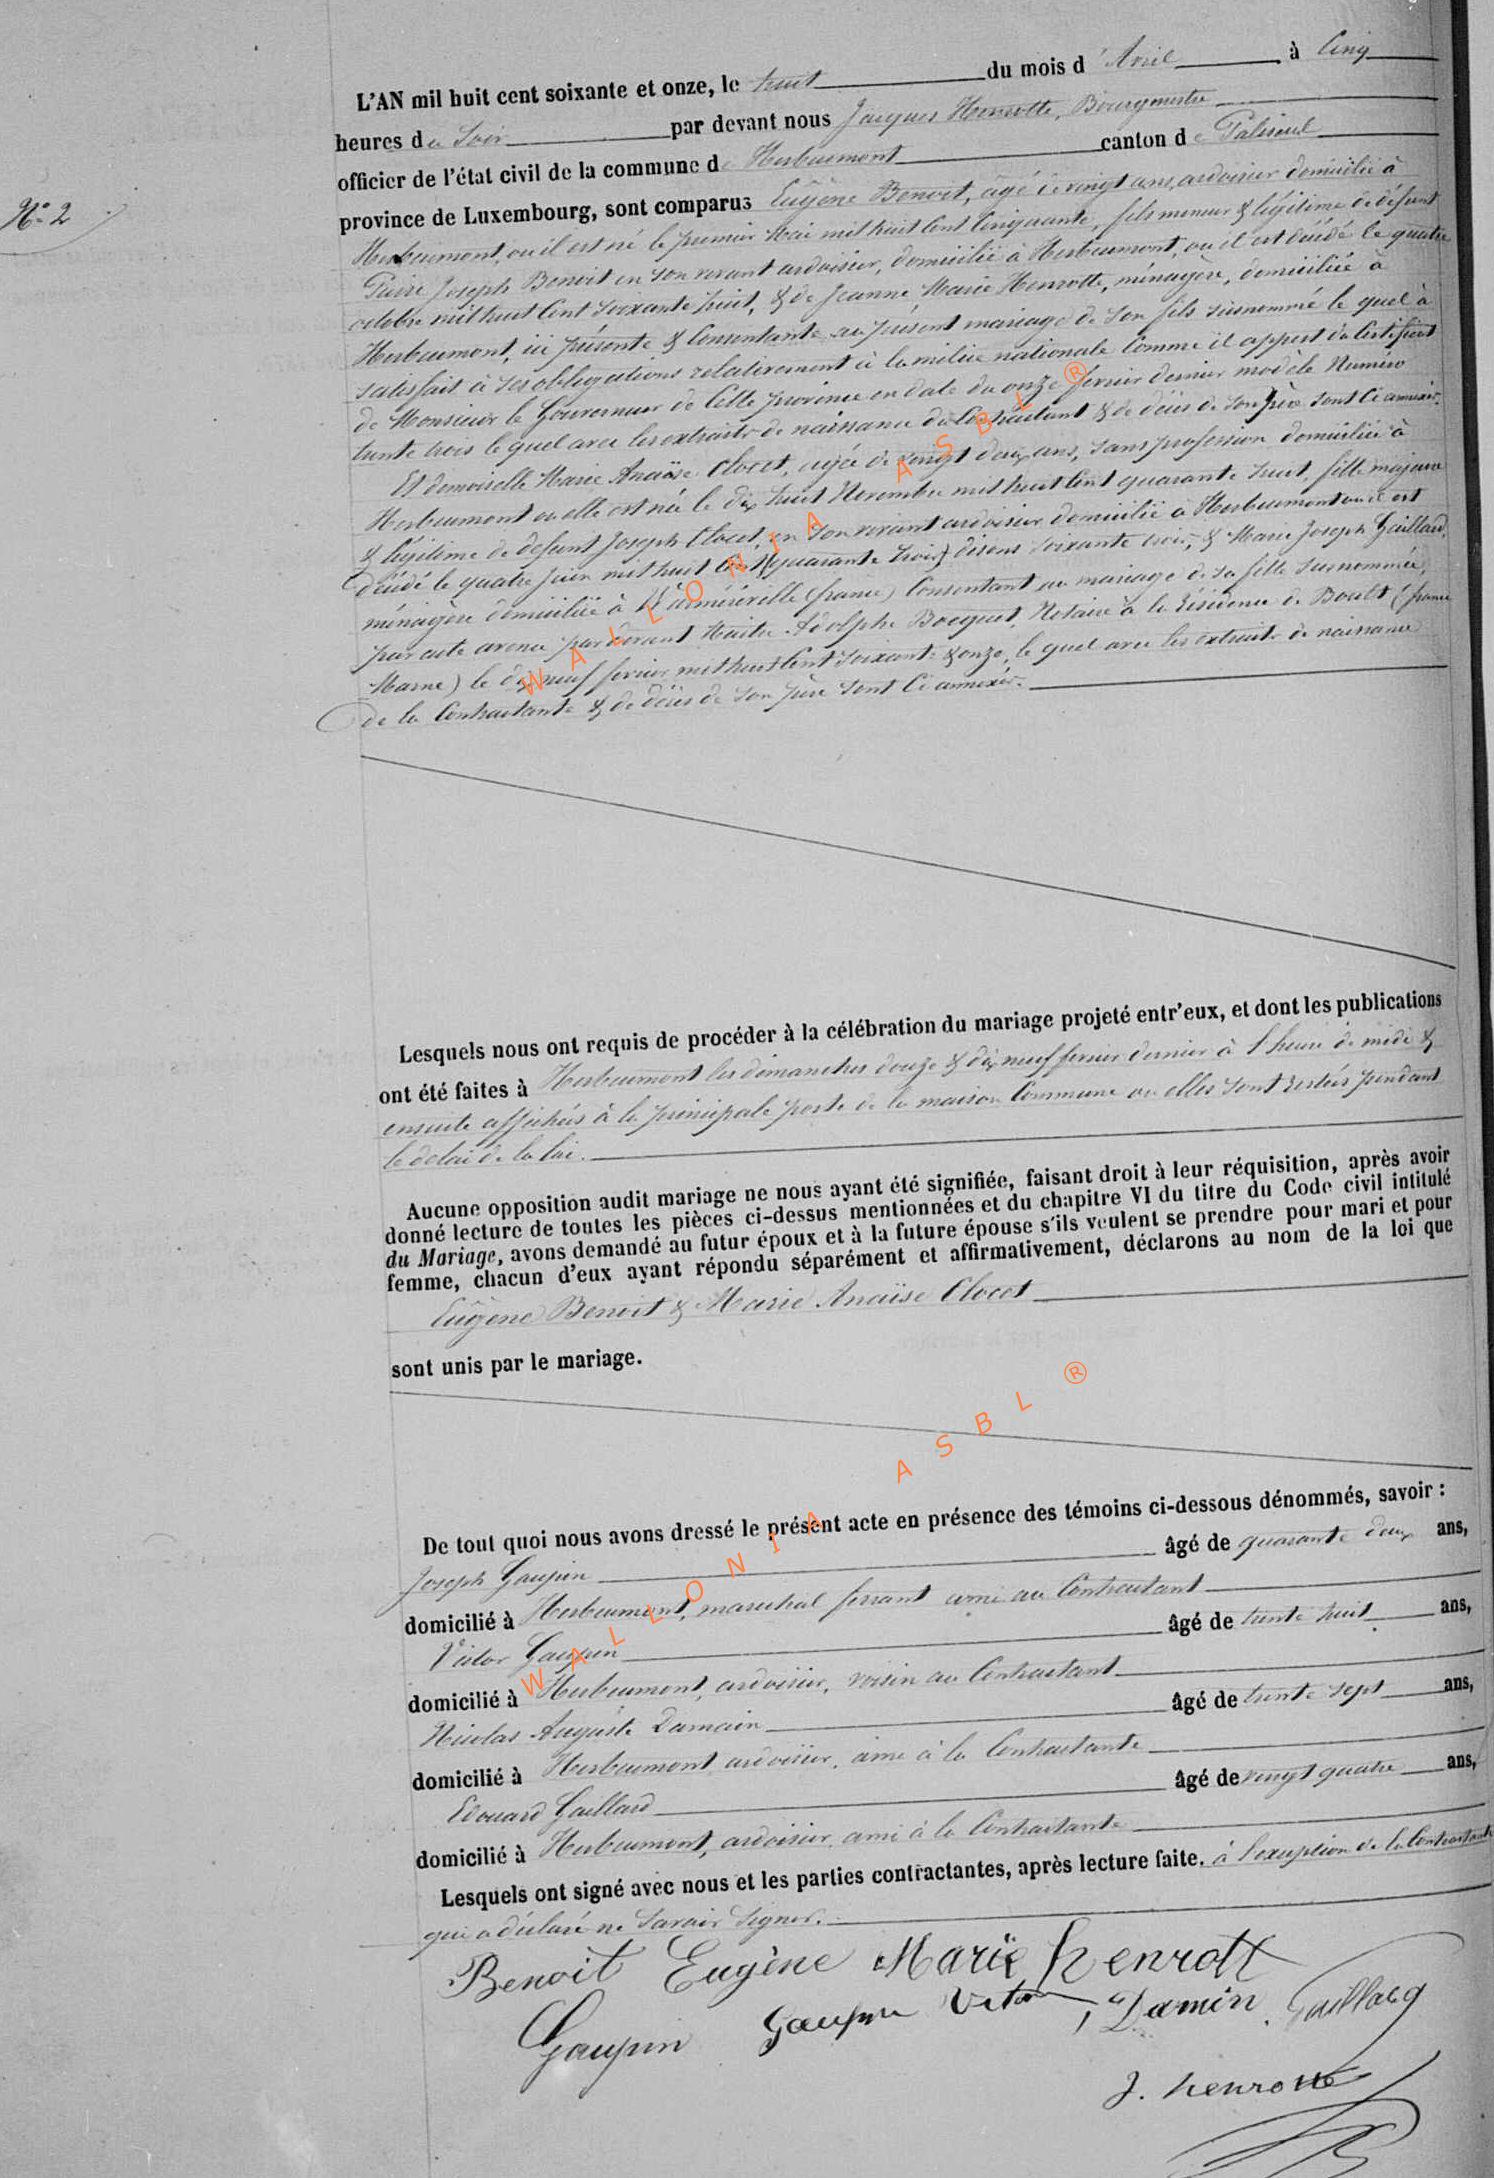 N° 2
L'AN mil huit cent soixante et onze, le huit du mois d'Avril à Cinq
heures du Soir par devant nous Jacques Henrotte, Bourgmestre
officier de l'état civil de la commune de Herbeumont canton de Paliseul
province de Luxembourg, sont comparus Eugène Benoit, âgé de vingt ans, ardoisier domicilié à
Herbeumont, ou il est né le premier Mai mil huit Cent Cinquante, fils mineur & légitime de défunt
Pierre Joseph Benoit en son vivant ardoisier, domicilié à Herbeumont, ou il est décédé le quatre
octobre mil huit Cent soixante huit, & de Jeanne Marie Henrotte, ménagère, domiciliée à
Herbeumont, ici présente & Consentante au présent mariage de son fils susnommé le quel à
satisfait à ses obligations relativement à la milice nationale Comme il appert du Certificat
de Monsieur le Gouverneur de Cette province en date du onze fevrier dernier modèle Numéro
trente trois le quel avec les extraits de naissance du Contractant & de décès de son père sont Ci annexés.
Et demoiselle Marie Anaïse Clocet, agée de vingt deux ans, sans profession domiciliée à
Herbeumont ou elle est née le dix huit Novembre mil huit Cent quarante huit, fille majeure
& légitime de defunt Joseph Clocet, en son vivant ardoisier domicilié à Herbeumont ou il est
décédé le quatre juin mil huit Cent (quarante trois) disons soixante trois, & Marie Joseph Gaillard,
ménagère domiciliée à Warmériville (france) Consentant au mariage de sa fille susnommée,
par acte avenu par devant Maitre Adolphe Bocquet, Notaire à la résidence de Boult (france
Marne) le dix neuf fevrier mil huit Cent soixante & onze, le quel avec les extraits de naissance
de la Contractante & de décès de son père sont Ci annexés.
Lesquels nous ont requis de procéder à la célébration du mariage projeté entr'eux, et dont les publications
ont été faites à Herbeumont les dimanches douze & dix neuf fevrier dernier à l'heure de midi &
ensuite affichées à la principale porte de la maison Commune ou elles sont restées pendant
le delai de la loi.
Aucune opposition audit mariage ne nous ayant été signifiée, faisant droit à leur réquisition, après avoir
donné lecture de toutes les pièces ci-dessus mentionnées et du chapitre VI du titre du Code civil intitulé
du Mariage, avons demandé au futur époux et à la future épouse s'ils veulent se prendre pour mari et pour
femme, chacun d'eux ayant répondu séparément et affirmativement, déclarons au nom de la loi que
Eugène Benoit & Marie Anaïse Clocet
sont unis par le mariage.
De tout quoi nous avons dressé le présent acte en présence des témoins ci-dessous dénommés, savoir :
Joseph Gaupin âgé de quarante deux ans,
domicilié à Herbeumont, marechal ferrant ami au Contractant
Victor Gaupin âgé de trente huit ans,
domicilié à Herbeumont, ardoisier, voisin au Contractant
Nicolas Auguste Damain âgé de trente sept ans,
domicilié à Herbeumont ardoisier, ami à la Contractante
Edouard Gaillard âgé de vingt quatre ans,
domicilié à Herbeumont, ardoisier ami à la Contractante
Lesquels ont signé avec nous et les parties contractantes, après lecture faite. à l'exception de la Contractante
qui a déclaré ne savoir signer.
Benoit Eugène Marie henrott
Gaupin Gaupin Victor Damin Gaillard
J. henrotte
WALLONIA ASBL ®
WALLONIA ASBL ®